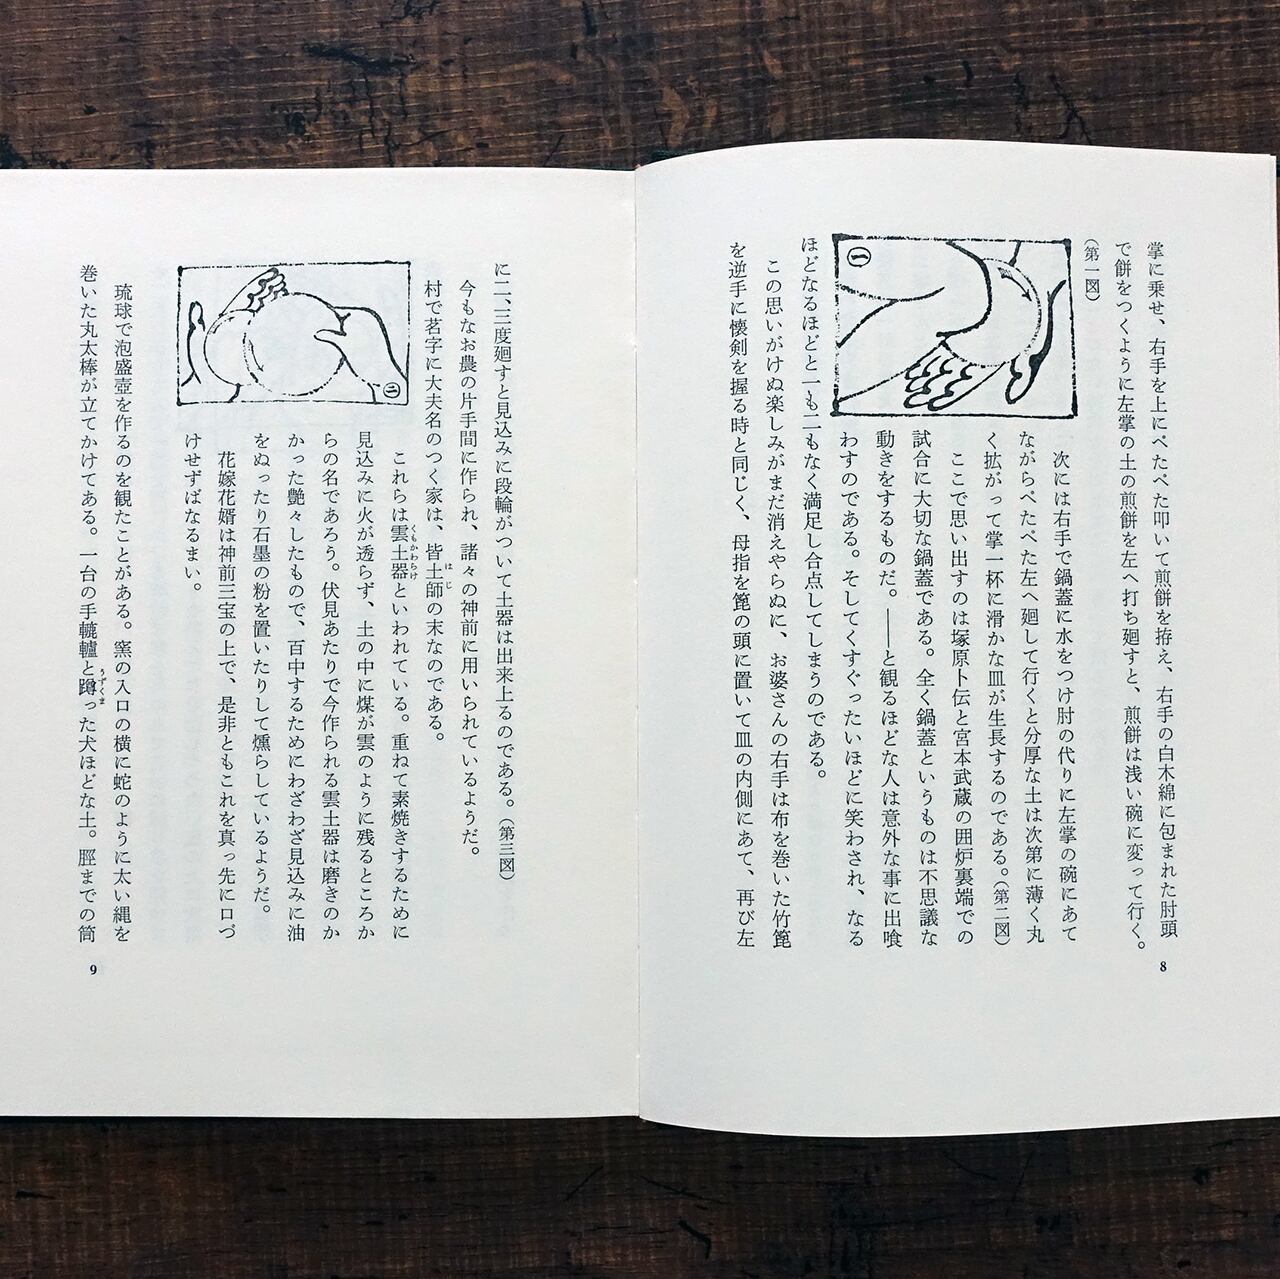 掌に乗せ、右手を上にぺたぺた叩いて煎餅を拵え、右手の白木綿に包まれた肘頭
で餅をつくように左掌の土の煎餅を左へ打ち廻すと、煎餅は浅い碗に変って行く。
（第一図）
一
次には右手で鍋蓋に水をつけ肘の代りに左掌の碗にあて
ながらぺたぺた左へ廻して行くと分厚な土は次第に薄く丸
く拡がって掌一杯に滑かな皿が生長するのである。（第二図）
ここで思い出すのは塚原卜伝と宮本武蔵の囲炉裏端での
試合に大切な鍋蓋である。全く鍋蓋というものは不思議な
動きをするものだ。――と観るほどな人は意外な事に出喰
わすのである。そしてくすぐったいほどに笑わされ、なる
ほどなるほどと一も二もなく満足し合点してしまうのである。
この思いがけぬ楽しみがまだ消えやらぬに、お婆さんの右手は布を巻いた竹箆
を逆手に懐剣を握る時と同じく、母指を箆の頭に置いて皿の内側にあて、再び左
8
に二、三度廻すと見込みに段輪がついて土器は出来上るのである。（第三図）
今もなお農の片手間に作られ、諸々の神前に用いられているようだ。
村で茗字に大夫名のつく家は、皆土師の末なのである。
はじ
二
これらは雲土器といわれている。重ねて素焼きするために
くもかわらけ
見込みに火が透らず、土の中に煤が雲のように残るところか
らの名であろう。伏見あたりで今作られる雲土器は磨きのか
かった艶々したもので、百中するためにわざわざ見込みに油
をぬったり石墨の粉を置いたりして燻らしているようだ。
花嫁花婿は神前三宝の上で、是非ともこれを真っ先に口づ
けせずばなるまい。
琉球で泡盛壺を作るのを観たことがある。窯の入口の横に蛇のように太い縄を
巻いた丸太棒が立てかけてある。一台の手轆轤と蹲った犬ほどな土。脛までの筒
うずくま
9